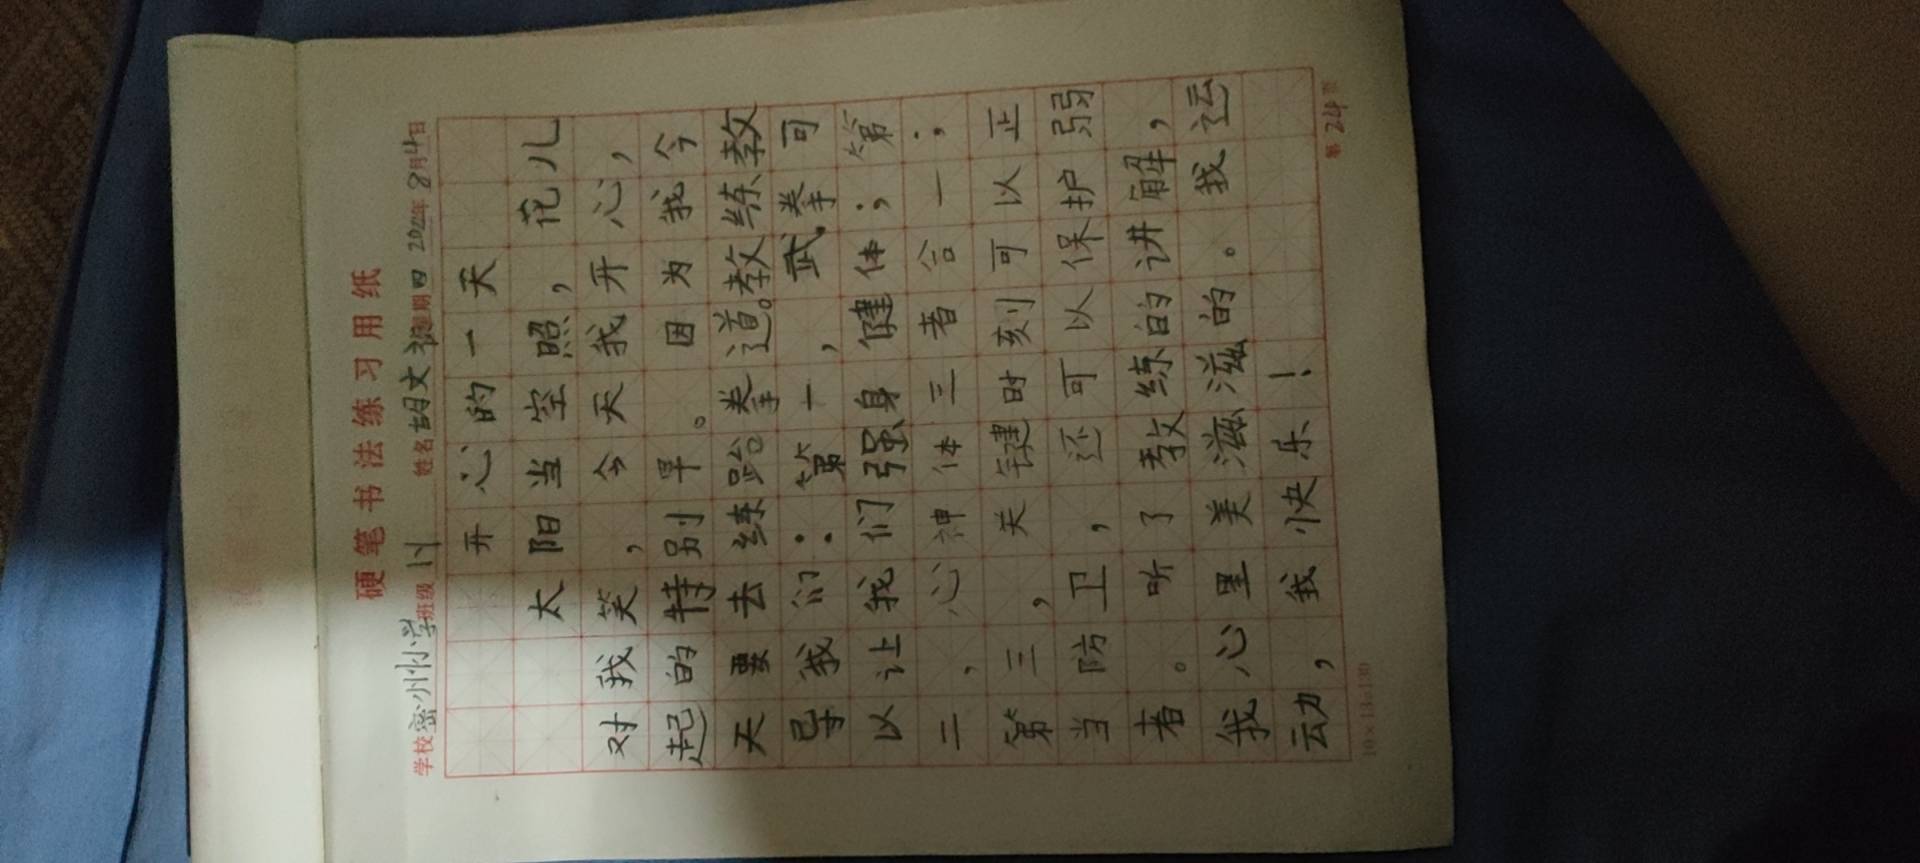 硬笔书法练习用纸
学校密州小学班级1.1姓名胡文 星期四2022年8月4日
开心的一天
太阳当空照，花儿
对我笑，今天我开心，
起的特别早。因为我今
天要去练跆拳道。教练教
导我们：第一，武拳可
以让我们强身健体；第
二，心神体三者合一；
第三，关键时刻可以正
当防卫，还可以保护弱
者。听了教练的讲解，
我心里美滋滋的。我运
动，我快乐！
10×13=130
第24页